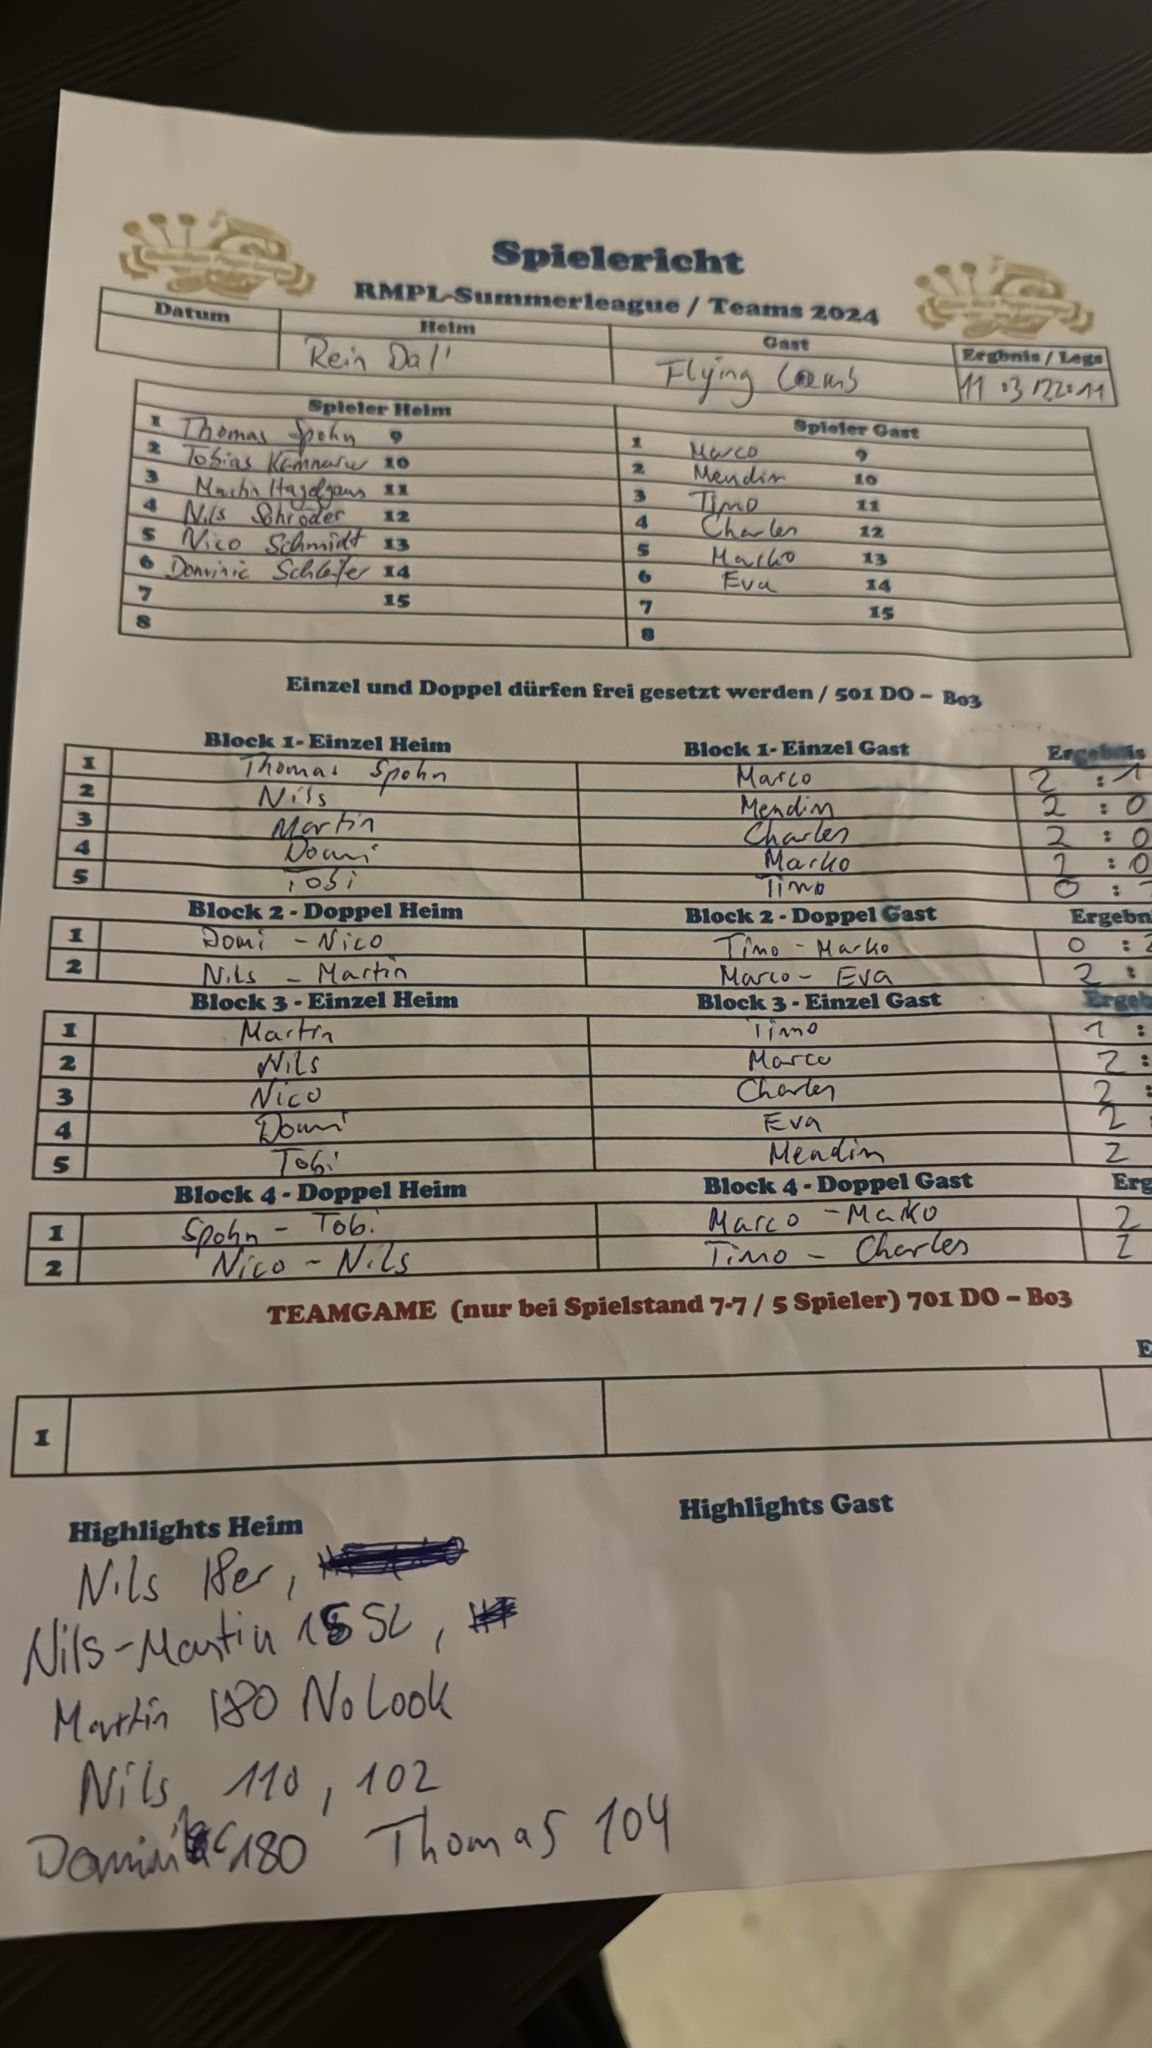 Spielericht
RMPL-Summerleague / Teams 2024
Datum Heim Gast Ergbnis / Legs
Rein Dal' Flying 11:3 22:11
Spieler Heim Spieler Gast
1 Thomas Spohn 9 1 Marco 9
2 Tobias 10 2 Mendim 10
3 Martin 11 3 Timo 11
4 Nils Schröder 12 4 Charles 12
5 Nico Schmidt 13 5 Marko 13
6 Dominic Schleifer 14 6 Eva 14
7 15 7 15
8 8
Einzel und Doppel dürfen frei gesetzt werden / 501 DO – Bo3
Block 1- Einzel Heim Block 1- Einzel Gast Ergebnis
1 Thomas Spohn Marco 2 : 1
2 Nils Mendim 2 : 0
3 Martin Charles 2 : 0
4 Domi Marko 2 : 0
5 Tobi Timo 0 :
Block 2 - Doppel Heim Block 2 - Doppel Gast Ergebn
1 Domi - Nico Timo - Marko 0 : 2
2 Nils - Martin Marco - Eva 2 :
Block 3 - Einzel Heim Block 3 - Einzel Gast Ergeb
1 Martin Timo 1 :
2 Nils Marco 2 :
3 Nico Charles 2 :
4 Domi Eva 2 :
5 Tobi Mendim 2
Block 4 - Doppel Heim Block 4 - Doppel Gast Erg
1 Spohn - Tobi Marco - Marko 2
2 Nico - Nils Timo - Charles 2
TEAMGAME (nur bei Spielstand 7-7 / 5 Spieler) 701 DO – Bo3
E
1
Highlights Heim Highlights Gast
Nils 18er,
Nils-Martin SL,
Martin 180 No Look
Nils 110, 102
Dominic 180 Thomas 104